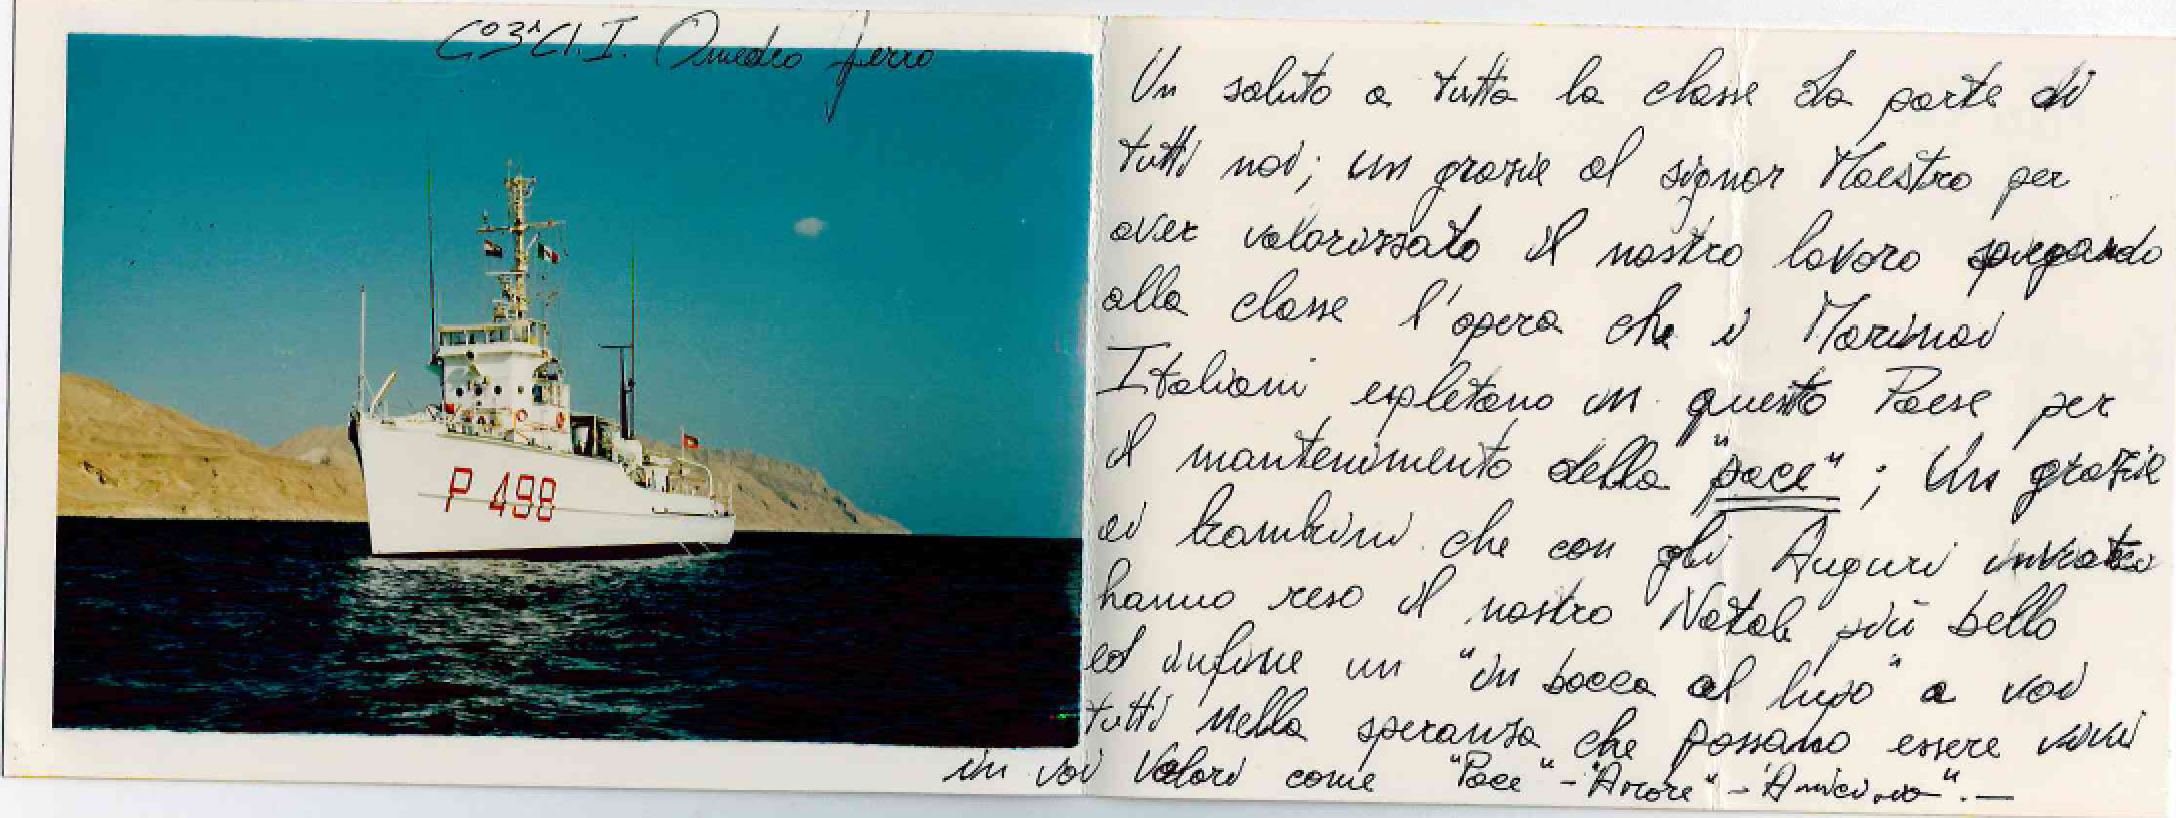 C°3ªCl. I. Amedeo Ferro
P 498
Un saluto a tutta la classe da parte di
tutti noi; un grazie al signor Maestro per
aver valorizzato il nostro lavoro spiegando
alla classe l'opera che i Marinai
Italiani espletano in questo Paese per
il mantenimento della "pace"; Un grazie
ai bambini che con gli Auguri inviatici
hanno reso il nostro Natale più bello
ed infine un "in bocca al lupo" a voi
tutti nella speranza che possano essere vivi
in voi Valori come "Pace" - "Amore" - "Amicizia". —